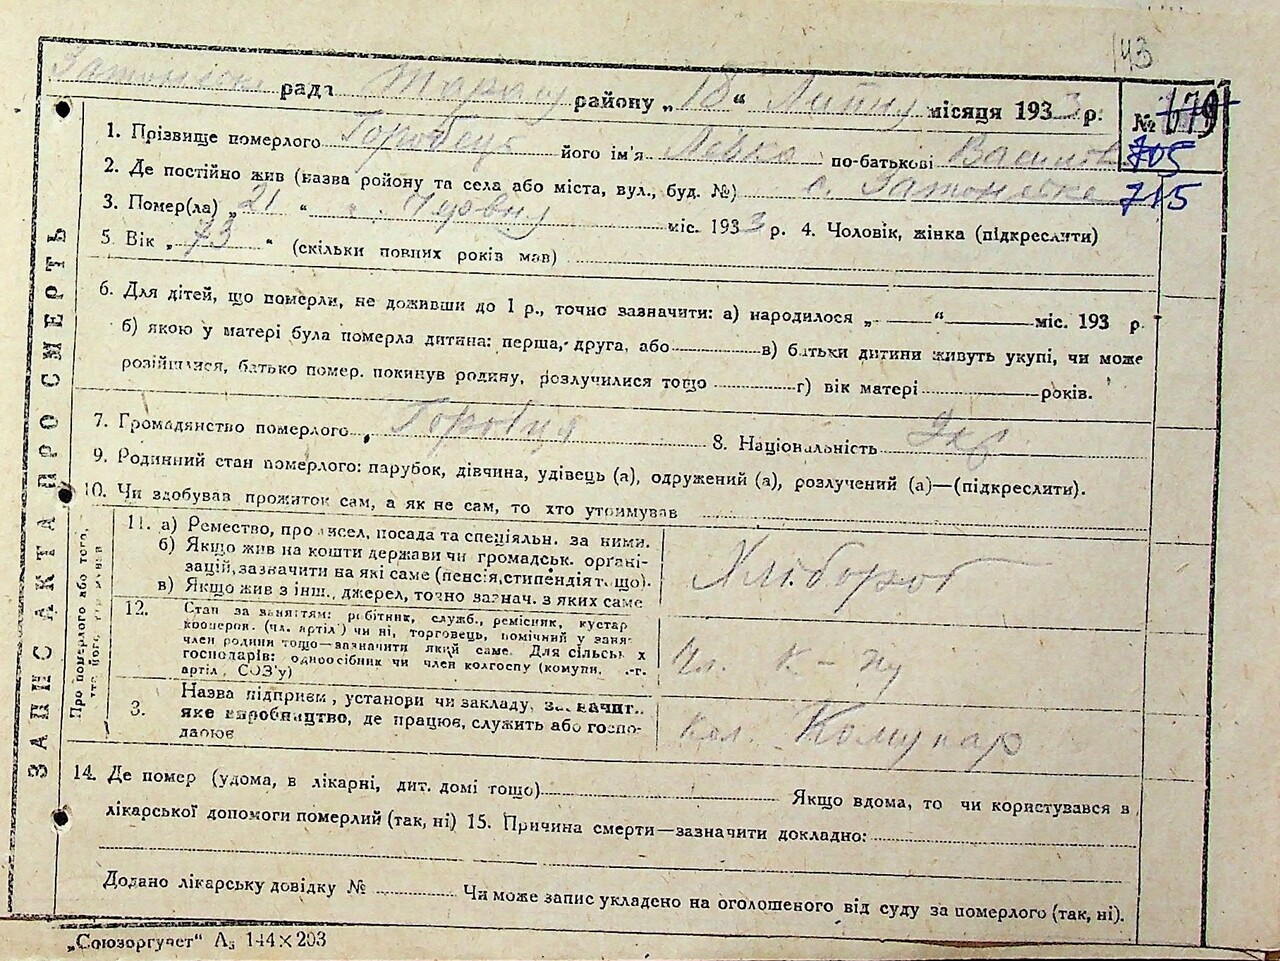 143
Затонська рада району „18“ Липня місяця 1933 р.
№ 679
705
715
1. Прізвище померлого Горобець його ім'я Левко по-батькові
2. Де постійно жив (назва ройону та села або міста, вул., буд. №) с. Затонське
3. Помер(ла) „21“ Червня міс. 1933 р. 4. Чоловік, жінка (підкреслити)
5. Вік „73“ (скільки повних років мав)
6. Для дітей, що померли, не доживши до 1 р., точно зазначити: а) народилося „ — “ — міс. 193 р.
б) якою у матері була померла дитина: перша, друга, або в) батьки дитини живуть укупі, чи може
розійшлися, батько помер, покинув родину, розлучилися тощо г) вік матері років.
7. Громадянство померлого 8. Національність Укр
9. Родинний стан померлого: парубок, дівчина, удівець (а), одружений (а), розлучений (а)—(підкреслити).
10. Чи здобував прожиток сам, а як не сам, то хто утримував
ЗАПИС АКТА ПРО СМЕРТЬ
Про померлого або того,
11. а) Ремество, промисел, посада та спеціяльн. за ними.
б) Якщо жив на кошти держави чи громадськ. орґані-
зацій, зазначити на які саме (пенсія, стипендія т. що).
в) Якщо жив з інш., джерел, точно зазнач. з яких саме
Хлібороб
12. Стан за заняттям: робітник, служб., ремісник, кустар
кооперов. (чл. артіл) чи ні, торговець, помічний у заня-
член родини тощо—зазначити який саме. Для сільськ х
господарів: одноосібник чи член колгоспу (комуни, -г.
артіл, СОЗ'у)
Чл. к-пу
3. Назва підприєм, установи чи закладу, зазначит.
яке виробництво, де працює, служить або госпо-
дарює
кол. Комунар
14. Де помер (удома, в лікарні, дит. домі тощо) Якщо вдома, то чи користувався в
лікарської допомоги померлий (так, ні) 15. Причина смерти—зазначити докладно:
Додано лікарську довідку № Чи може запис укладено на оголошеного від суду за померлого (так, ні).
„Союзоргучет“ А₅ 144×203